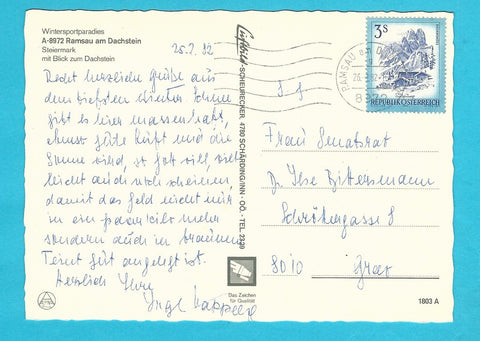 Wintersportparadies
A-8972 Ramsau am Dachstein
Steiermark
mit Blick zum Dachstein
25.2.82
Recht herzliche Grüße aus
dem tiefsten Winter. Schnee
gibt es hier massenhaft,
ebenso gute Luft und die
Sonne wird, so Gott will, viel-
leicht auch noch scheinen,
damit das Geld nicht nur
in ein paar Kilo mehr
sondern auch in braunem
Teint gut angelegt ist.
Herzlich Ihre
Inge
Luftbild-SCHEURECKER, 4780 SCHÄRDING/INN - OÖ. - TEL. 2329
RAMSAU
26.
82
8972
3 S
REPUBLIK ÖSTERREICH
Frau Senatsrat
Dr Ilse Bittersmann
Schröttergasse 8
8010 Graz
Das Zeichen
für Qualität
1803 A